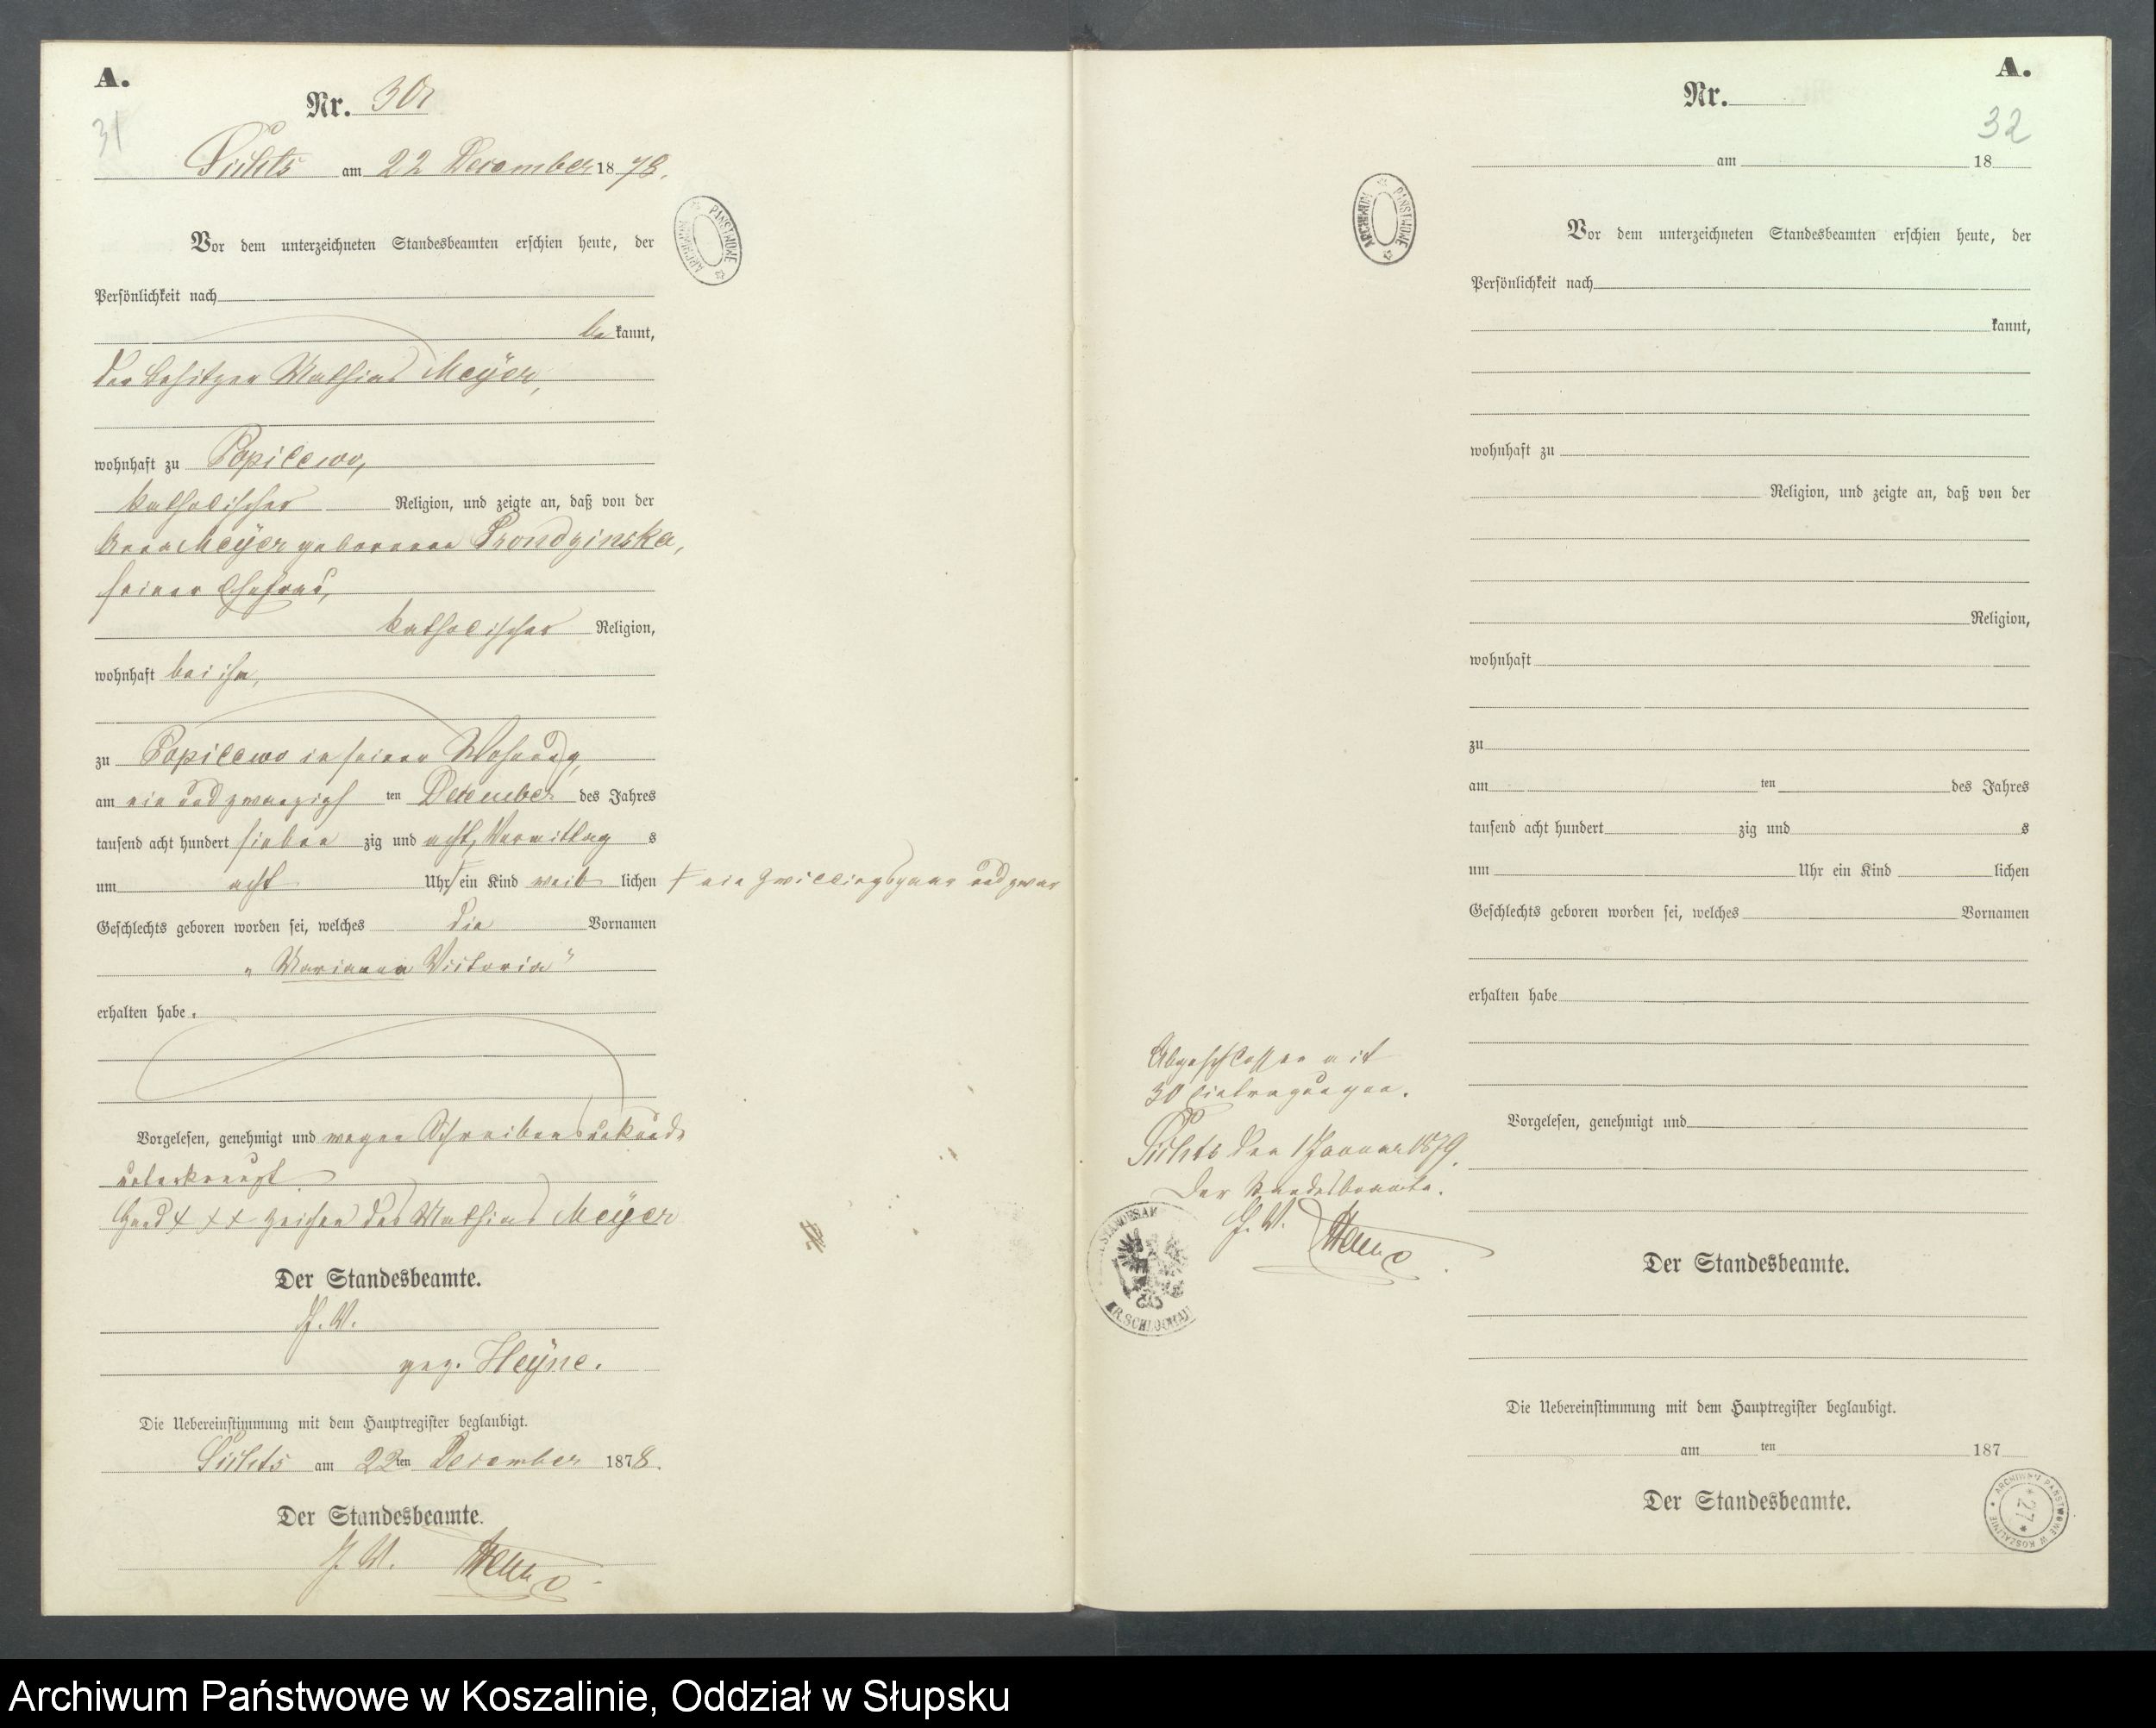 A.
Nr. 30
31
am 22 December 1878.
Vor dem unterzeichneten Standesbeamten erschien heute, der
Persönlichkeit nach
bekannt,
der Besitzer Mathias Meÿer,
wohnhaft zu
katholischer Religion, und zeigte an, daß von der
Anna Meÿer geborenen Prondzinska,
seiner Ehefrau,
katholischer Religion,
wohnhaft bei ihm,
zu in seiner Wohnung,
am ein und zwanzigsten December des Jahres
tausend acht hundert siebenzig und acht, Vormittags
um acht Uhr ein Kind weiblichen
ein Zwillingspaar und zwar
Geschlechts geboren worden sei, welches die Vornamen
„Marianna Victoria"
erhalten habe.
Vorgelesen, genehmigt und wegen Schreibensunkunde
unterkreuzt
Hand + + + Zeichen des Mathias Meÿer
Der Standesbeamte.
gez. Heÿne.
Die Uebereinstimmung mit dem Hauptregister beglaubigt.
am 22ten December 1878.
Der Standesbeamte.
ARCHIWUM PAŃSTWOWE
A.
Nr.
32
am 18
Vor dem unterzeichneten Standesbeamten erschien heute, der
Persönlichkeit nach
kannt,
wohnhaft zu
Religion, und zeigte an, daß von der
Religion,
wohnhaft
zu
am ten des Jahres
tausend acht hundert zig und s
um Uhr ein Kind lichen
Geschlechts geboren worden sei, welches Vornamen
erhalten habe
Vorgelesen, genehmigt und
Der Standesbeamte.
Die Uebereinstimmung mit dem Hauptregister beglaubigt.
am ten 187
Der Standesbeamte.
ARCHIWUM PAŃSTWOWE
Abgeschlossen mit
30 Eintragungen.
den 1 Januar 1879.
Der Standesbeamte.
KR. SCHLOCHAU
ARCHIWUM PAŃSTWOWE W KOSZALINIE
* 27 *
Archiwum Państwowe w Koszalinie, Oddział w Słupsku